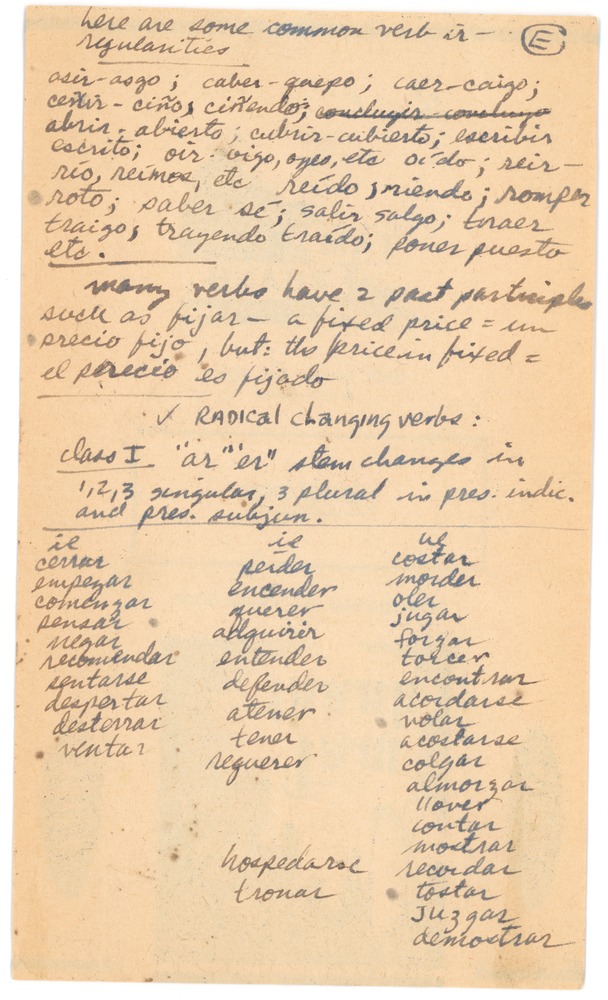 here are some common verb ir-
regularities
E
asir-asgo; caber-quepo; caer-caigo;
ceñir-ciño, ciñendo; concluyir concluyo
abrir-abierto; cubrir-cubierto; escribir
escrito; oir-oigo, oyes, etc oído; reir-
río, reímos, etc reído, riendo; romper
roto; saber sé; salir salgo; traer
traigo, trayendo traído; poner puesto
etc.
many verbs have 2 past participles
such as fijar- a fixed price = un
precio fijo, but: the price in fixed =
el precio es fijado
✓ RADICAL changing verbs:
class I "ar" "er" stem changes in
1,2,3 singular, 3 plural in pres. indic.
and pres. subjun.
ie ie ue
cerrar perder costar
empezar encender morder
comenzar querer oler
pensar adquirir jugar
negar entender forzar
recomendar defender torcer
sentarse atener encontrar
despertar tener acordarse
desterrar requerer volar
ventar acostarse
colgar
almorzar
llover
contar
mostrar
hospedarse recordar
tronar tostar
Juzgar
demostrar